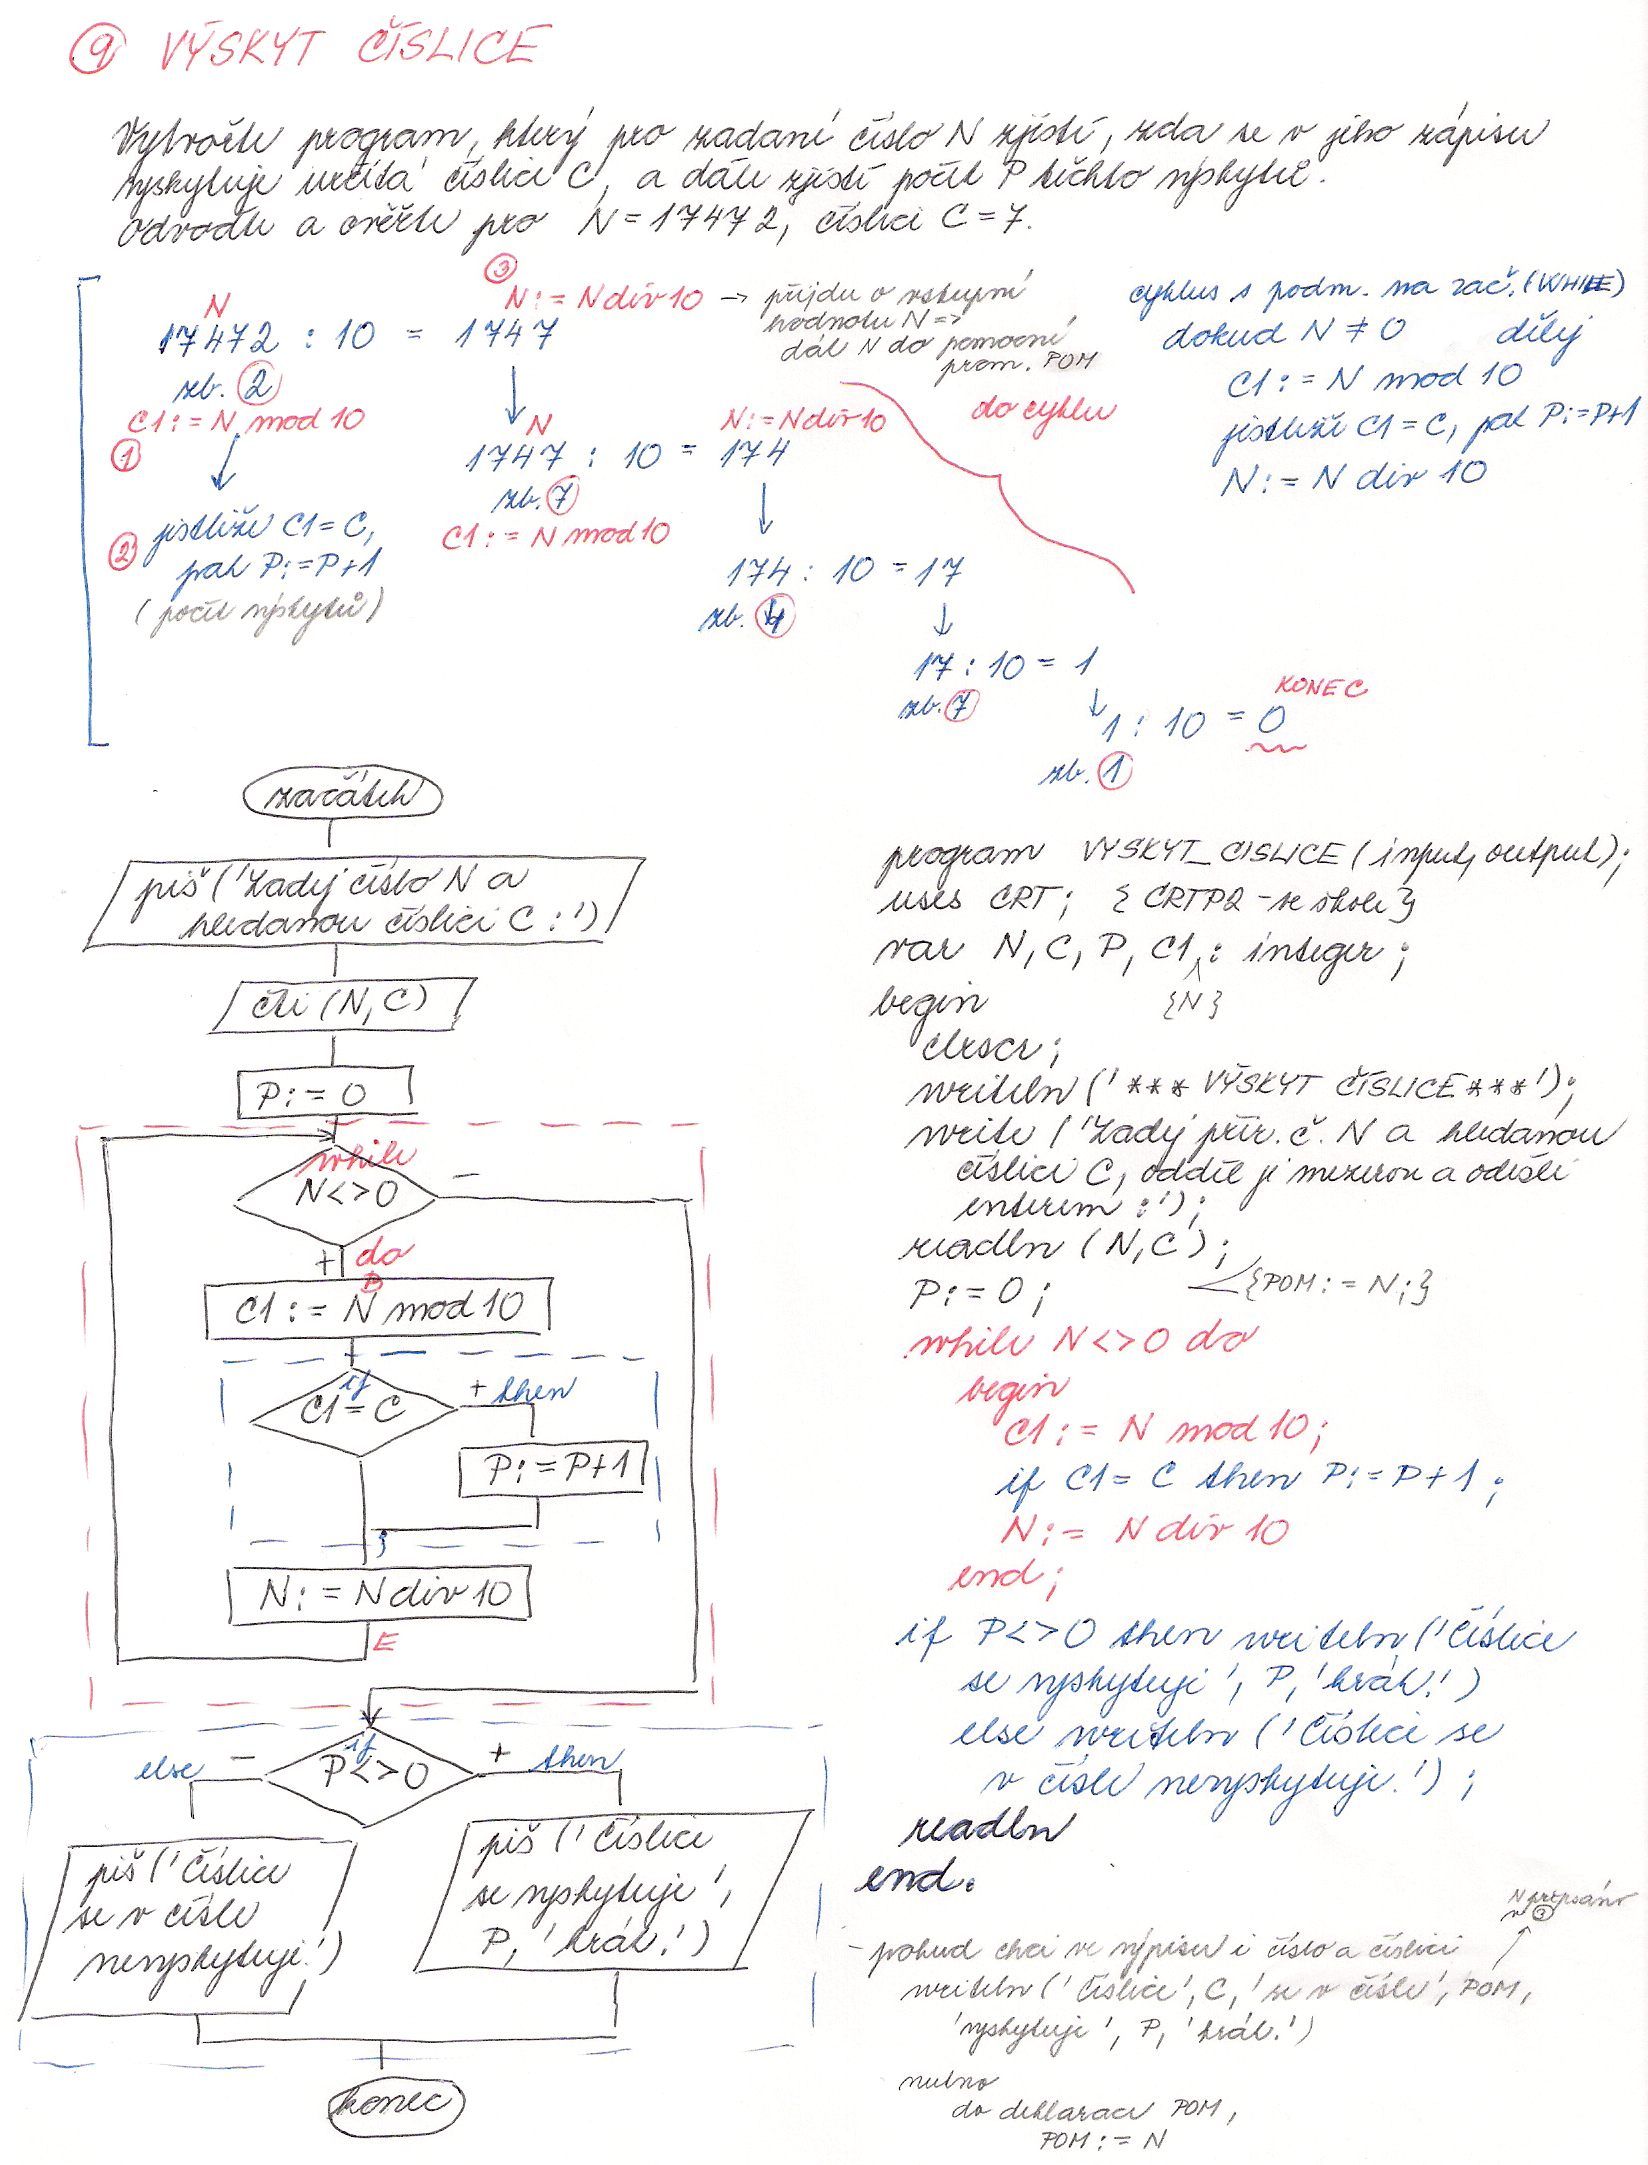 9 VÝSKYT ČÍSLICE
Vytvořte program, který pro zadané číslo N zjistí, zda se v jeho zápisu
vyskytuje určitá číslice C, a dále zjistí počet P těchto výskytů.
Odvoďte a ověřte pro N = 17472, číslici C = 7.
N
17472 : 10 = 1747
zb. 2
C1 := N mod 10
1
2 jestliže C1 = C,
pak P := P+1
(počet výskytů)
3
N := N div 10 → přijdu o vstupní
hodnotu N =>
dát N do pomocné
prom. POM
N
1747 : 10 = 174
zb. 7
C1 := N mod 10
N := N div 10
174 : 10 = 17
zb. 4
17 : 10 = 1
zb. 7
1 : 10 = 0
KONEC
zb. 1
do cyklu
cyklus s podm. na zač. (WHILE)
dokud N ≠ 0 dělej
C1 := N mod 10
jestliže C1 = C, pak P := P+1
N := N div 10
začátek
piš ('Zadej číslo N a
hledanou číslici C :')
čti (N, C)
P := 0
while
N <> 0
-
+ do
B
C1 := N mod 10
if
C1 = C
+ then
P := P+1
;
N := N div 10
E
if
P <> 0
else -
+ then
piš ('Číslice
se v čísle
nevyskytuje.')
piš ('Číslice
se vyskytuje',
P, 'krát.')
konec
program VYSKYT_CISLICE (input, output);
uses CRT; {CRTP2 - ve škole}
var N, C, P, C1 : integer;
{N}
begin
clrscr;
writeln ('*** VÝSKYT ČÍSLICE ***');
write ('Zadej přir. č. N a hledanou
číslici C, odděl je mezerou a odešli
enterem :');
readln (N, C);
P := 0; {POM := N;}
while N <> 0 do
begin
C1 := N mod 10;
if C1 = C then P := P+1;
N := N div 10
end;
if P <> 0 then writeln ('Číslice
se vyskytuje', P, 'krát.')
else writeln ('Číslice se
v čísle nevyskytuje.');
readln
end.
N přepsáno
v 3
- pokud chci ve výpisu i číslo a číslici
writeln ('Číslice', C, 'se v čísle', POM,
'vyskytuje', P, 'krát.')
nutno
do deklarace POM,
POM := N